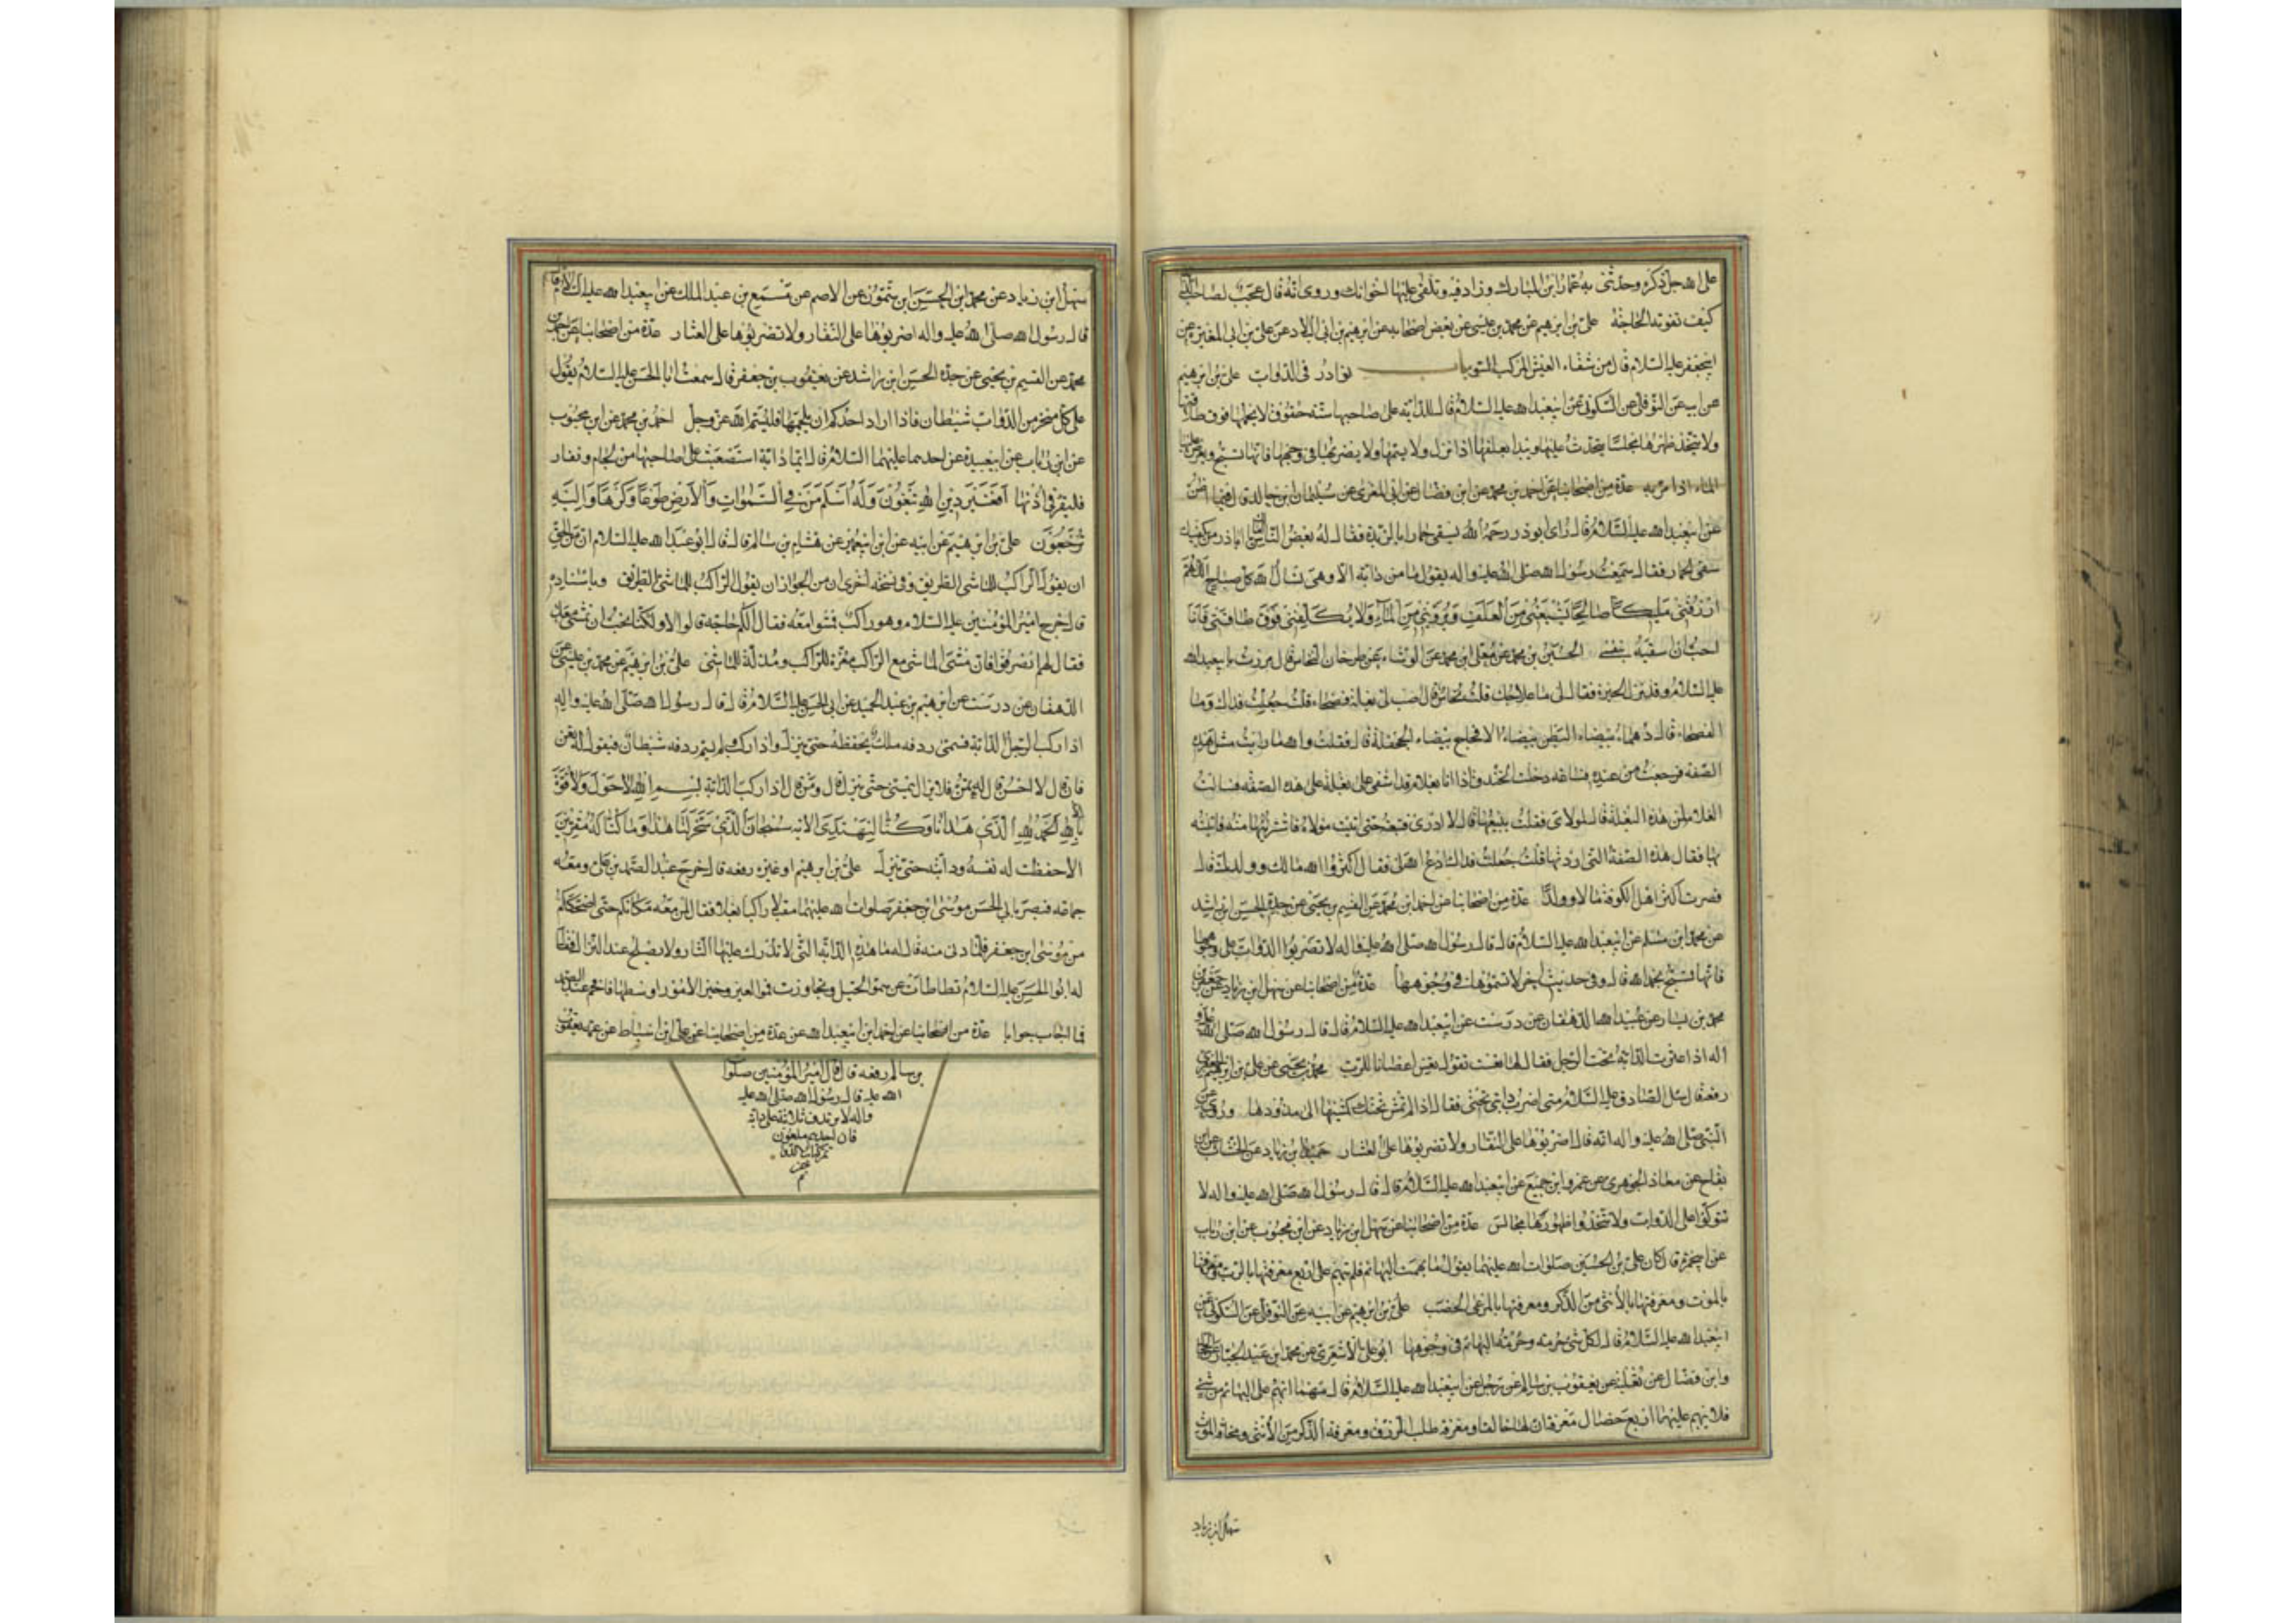 على الله جل ذكره وحدثنى به عمار ابن المبارك وزاد فيه وتلقى عليها اخوانك وروى انه قال عجب لصاحب الدابة
كيف تفوته الحاجة على بن ابرهيم عن محمد بن عيسى عن بعض اصحابه عن ابرهيم بن ابى البلاد عن على بن ابى المغيرة عن
ابيجعفر عليه السلام قال من شقاء العيش المركب السوء باب نوادر فى الدواب على بن ابرهيم
عن ابيه عن النوفلى عن السكونى عن ابيعبدالله عليه السلام قال للدابة على صاحبها ستة حقوق لا يحملها فوق طاقتها
ولا يتخذ ظهرها مجلسا يتحدث عليها ويبدا بعلفها اذا نزل ولا يسمها ولا يضربها فى وجهها فانها تسبح ويعرض عليها
الماء اذا مر به عدة من اصحابنا عن احمد بن محمد عن ابن فضال عن ابى المغرى عن سليمان ابن خالد قال فيما اظن
عن ابيعبدالله عليه السلام قال راى ابوذر رحمه الله يسقى حمارا بالربذة فقال له بعض الناس اما لك ياباذر من يكفيك
سقى الحمار فقال سمعت رسول الله صلى الله عليه واله يقول ما من دابة الا وهى تسال الله كل صباح اللهم
ارزقنى مليكا صالحا يشبعنى من العلف ويروينى من الماء ولا يكلفنى فوق طاقتى فانا
احب ان اسقيه بنفسى الحسين بن محمد عن معلى ابن محمد عن الوشاء عن طرخان النخاس قال مررت بابيعبدالله
عليه السلام وقد نزل الحيرة فقال لى ما علاجك قلت نخاس قال اصب لى بغلة فضحاء قلت جعلت فداك وما
الفضحاء قال دهماء بيضاء البطن بيضاء الافحاج بيضاء الجحفلة قال فقلت والله ما رايت مثل هذه
الصفة فرجعت من عنده فساعة دخلت الخندق واذا انا بغلام قد اشفى على بغلة على هذه الصفة فسالت
الغلام لمن هذه البغلة قال لمولاى فقلت يبيعها قال لا ادرى فتبعته حتى اتيت مولاه فاشتريتها منه فاتيته
بها فقال هذه الصفة التى اردتها قلت جعلت فداك ادع الله لى فقال اكثر الله مالك وولدك قال
فصرت اكثر اهل الكوفة مالا وولدا عدة من اصحابنا عن احمد ابن محمد عن القسيم بن يحيى عن جده الحسن ابن راشد
عن محمد ابن مسلم عن ابيعبدالله عليه السلام قال قال رسول الله صلى الله عليه واله لا تضربوا الدواب على وجوهها
فانها تسبح بحمد الله قال وفى حديث اخر لا تسموها فى وجوهها عدة من اصحابنا عن سهل ابن زياد عن جعفر بن
محمد بن يسار عن عبيدالله الدهقان عن درست عن ابيعبدالله عليه السلام قال قال رسول الله صلى الله عليه و
اله اذا عثرت الدابة تحت الرجل فقال لها تعست تقول تعس اعصانا للرب محمد بن يحيى عن على بن ابرهيم الجعفرى
رفعه قال سئل الصادق عليه السلام متى اضرب دابتى تحتى فقال اذا لم تمش تحتك كمشيها الى مذودها وروى عن
النبى صلى الله عليه واله انه قال اضربوها على النفار ولا تضربوها على العثار حميد بن زياد عن الخشاب عن ابن
بقاح عن معاذ الجوهرى عن عمرو ابن جميع عن ابيعبدالله عليه السلام قال قال رسول الله صلى الله عليه واله لا
تتوركوا على الدواب ولا تتخذوا ظهورها مجالس عدة من اصحابنا عن سهل ابن زياد عن ابن محبوب عن ابن رئاب
عن ابيحمزة قال كان على بن الحسين صلوات الله عليهما يقول ما بهمت البهائم فلم تبهم على اربع معرفتها بالرب ومعرفتها
بالموت ومعرفتها بالانثى من الذكر ومعرفتها بالمرعى الخصب على بن ابرهيم عن ابيه عن النوفلى عن السكونى عن
ابيعبدالله عليه السلام قال لكل شىء حرمة وحرمة البهائم فى وجوهها ابوعلى الاشعرى عن محمد ابن عبد الجبار عن الحجال
وابن فضال عن ثعلبة عن يعقوب بن سالم عن رجل عن ابيعبدالله عليه السلام قال مهما ابهم على البهائم من شىء
فلا يبهم عليها اربع خصال معرفة ان لها خالقا ومعرفة طلب الرزق ومعرفة الذكر من الانثى ومخافة الموت
سهل ابن زياد
سهل ابن زياد عن محمد ابن الحسن ابن شمون عن الاصم عن مسمع بن عبد الملك عن ابيعبدالله عليه السلام قال
قال رسول الله صلى الله عليه واله اضربوها على النفار ولا تضربوها على العثار عدة من اصحابنا عن احمد بن
محمد عن القسيم بن يحيى عن جده الحسن ابن راشد عن يعقوب بن جعفر قال سمعت ابا الحسن عليه السلام يقول
على كل منخر من الدواب شيطان فاذا اراد احدكم ان يلجمها فليسم الله عز وجل احمد بن محمد عن ابن محبوب
عن ابن رئاب عن ابيعبيدة عن احدهما عليهما السلام قال ايما دابة استصعبت على صاحبها من لجام ونفار
فليقرا فى اذنها افغير دين الله تبغون وله اسلم من فى السموات والارض طوعا وكرها واليه
ترجعون على بن ابرهيم عن ابيه عن ابن ابيعمير عن هشام بن سالم قال قال ابو عبد الله عليه السلام ان من الحق
ان يقول الراكب للماشى الطريق وفى نسخة اخرى ان من الجور ان يقول الراكب للماشى الطريق وباسناده
قال خرج امير المؤمنين عليه السلام وهو راكب فمشوا معه فقال الكم حاجة قالوا لا ولكنا نحب ان نمشى معك
فقال لهم انصرفوا فان مشى الماشى مع الراكب مفسدة للراكب ومذلة للماشى على بن ابرهيم عن محمد بن عيسى عن
الدهقان عن درست عن ابرهيم بن عبد الحميد عن ابى الحسن عليه السلام قال قال رسول الله صلى الله عليه واله
اذا ركب الرجل الدابة فسمى ردفه ملك يحفظه حتى ينزل واذا ركب ولم يسم ردفه شيطان فيقول له تغن
فان قال لا احسن قال له تمن فلا يزال يتمنى حتى ينزل قال ومن قال اذا ركب الدابة بسم الله لا حول ولا قوة
الا بالله الحمد لله الذى هدانا وكنا لنهتدى الاية سبحان الذى سخر لنا هذا وما كنا له مقرنين
الا حفظت له نفسه ودابته حتى ينزل على بن ابرهيم او غيره رفعه قال خرج عبد الصمد بن على ومعه
جماعة فبصر بابى الحسن موسى ابن جعفر صلوات الله عليهما مقبلا راكبا بغلا فقال لمن معه مكانكم حتى اضحككم
من موسى ابن جعفر فلما دنى منه قال له ما هذه الدابة التى لا تدرك عليها الثار ولا يصلح عند النزال فقال
له ابو الحسن عليه السلام تطاطات عن سمو الخيل وتجاوزت قموا العير وخير الامور اوسطها فافحم عبد الصمد
فما اجاب جوابا عدة من اصحابنا عن احمد ابن ابيعبدالله عن عدة من اصحابنا عن على ابن اسباط عن عمه يعقوب
بن سالم رفعه قال قال امير المؤمنين صلوات
الله عليه قال رسول الله صلى الله عليه
واله لا يرتدف ثلاثة على دابة
فان احدهم ملعون